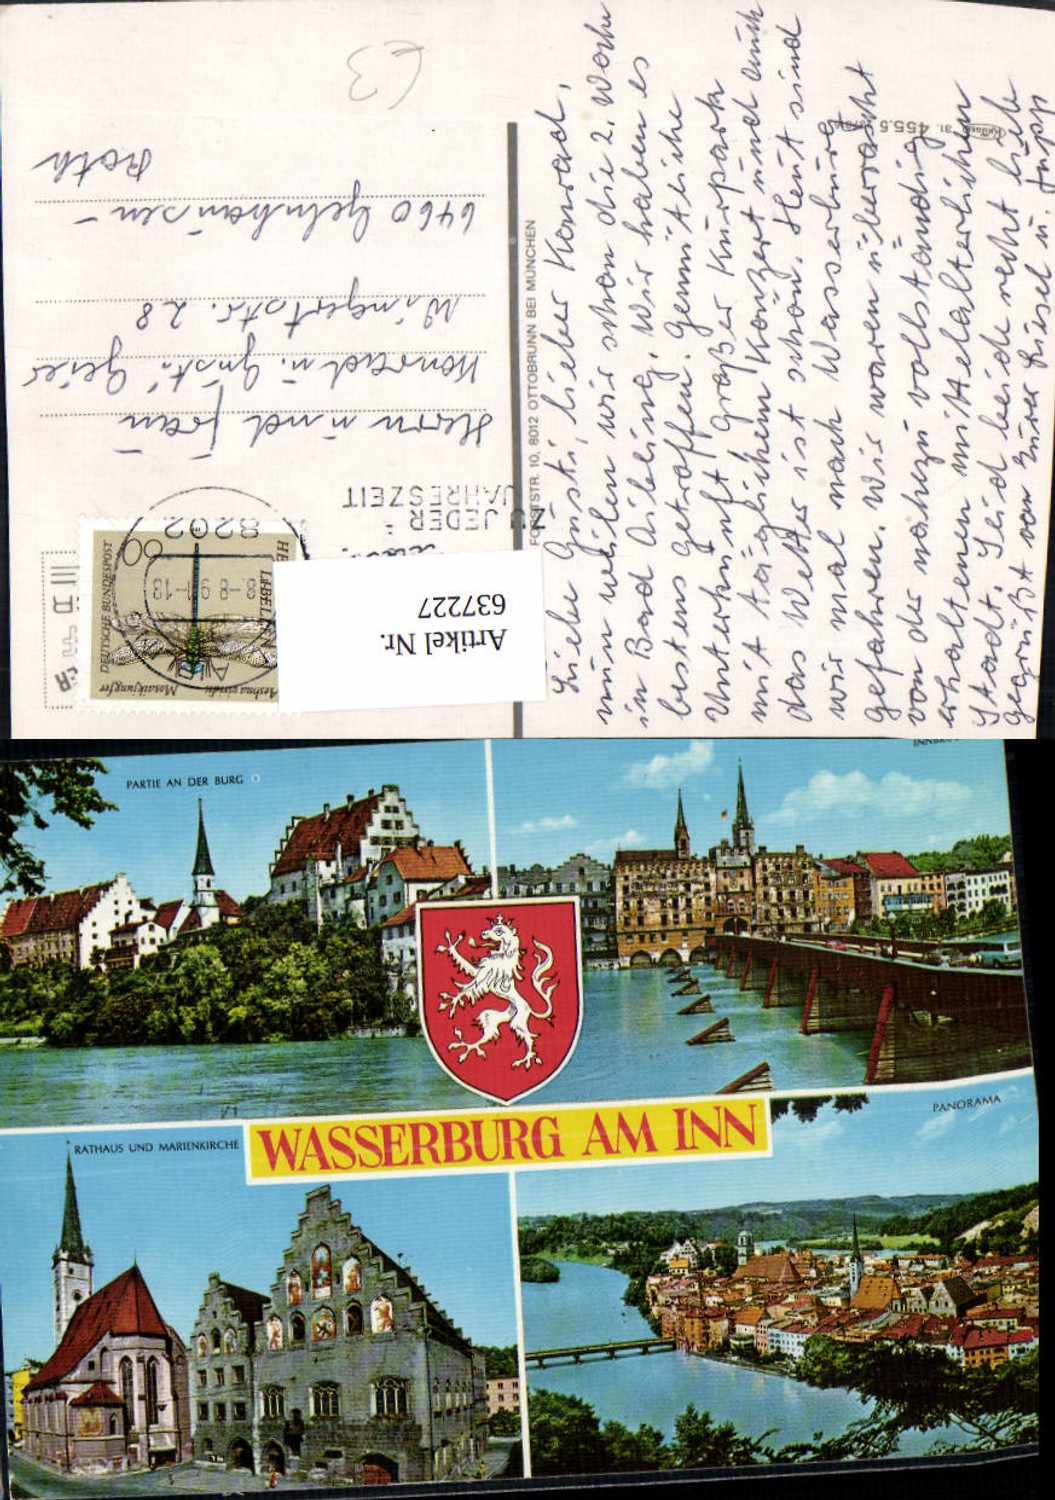 Liebe Gusti, lieber Konrad,
nun weilen wir schon die 2. Woche
in Bad Aibling. Wir haben es
bestens getroffen. Gemütliche
Unterkunft großer Kurpark
mit täglichem Konzert und auch
das Wetter ist schön. Heut sind
wir mal nach Wasserburg
gefahren. Wir waren überrascht
von der nahezu vollständig
erhaltenen mittelalterlichen
Stadt. Seid beide recht lieb
gegrüßt von Eurer Liesel u. Jupp
FORSTSTR. 10, 8012 OTTOBRUNN BEI MÜNCHEN
455.5
Krüger
ZU JEDER
JAHRESZEIT
8202
-8.-8.9
-13
DEUTSCHE BUNDESPOST
60
LIBELLEN
Aeshna viridis
Mosaikjungfer
Artikel Nr.
637227
Herrn und Frau
Konrad u. Gusti Geier
Wingertstr. 28
6460 Gelnhausen -
Roth
€3
PARTIE AN DER BURG
RATHAUS UND MARIENKIRCHE
WASSERBURG AM INN
PANORAMA